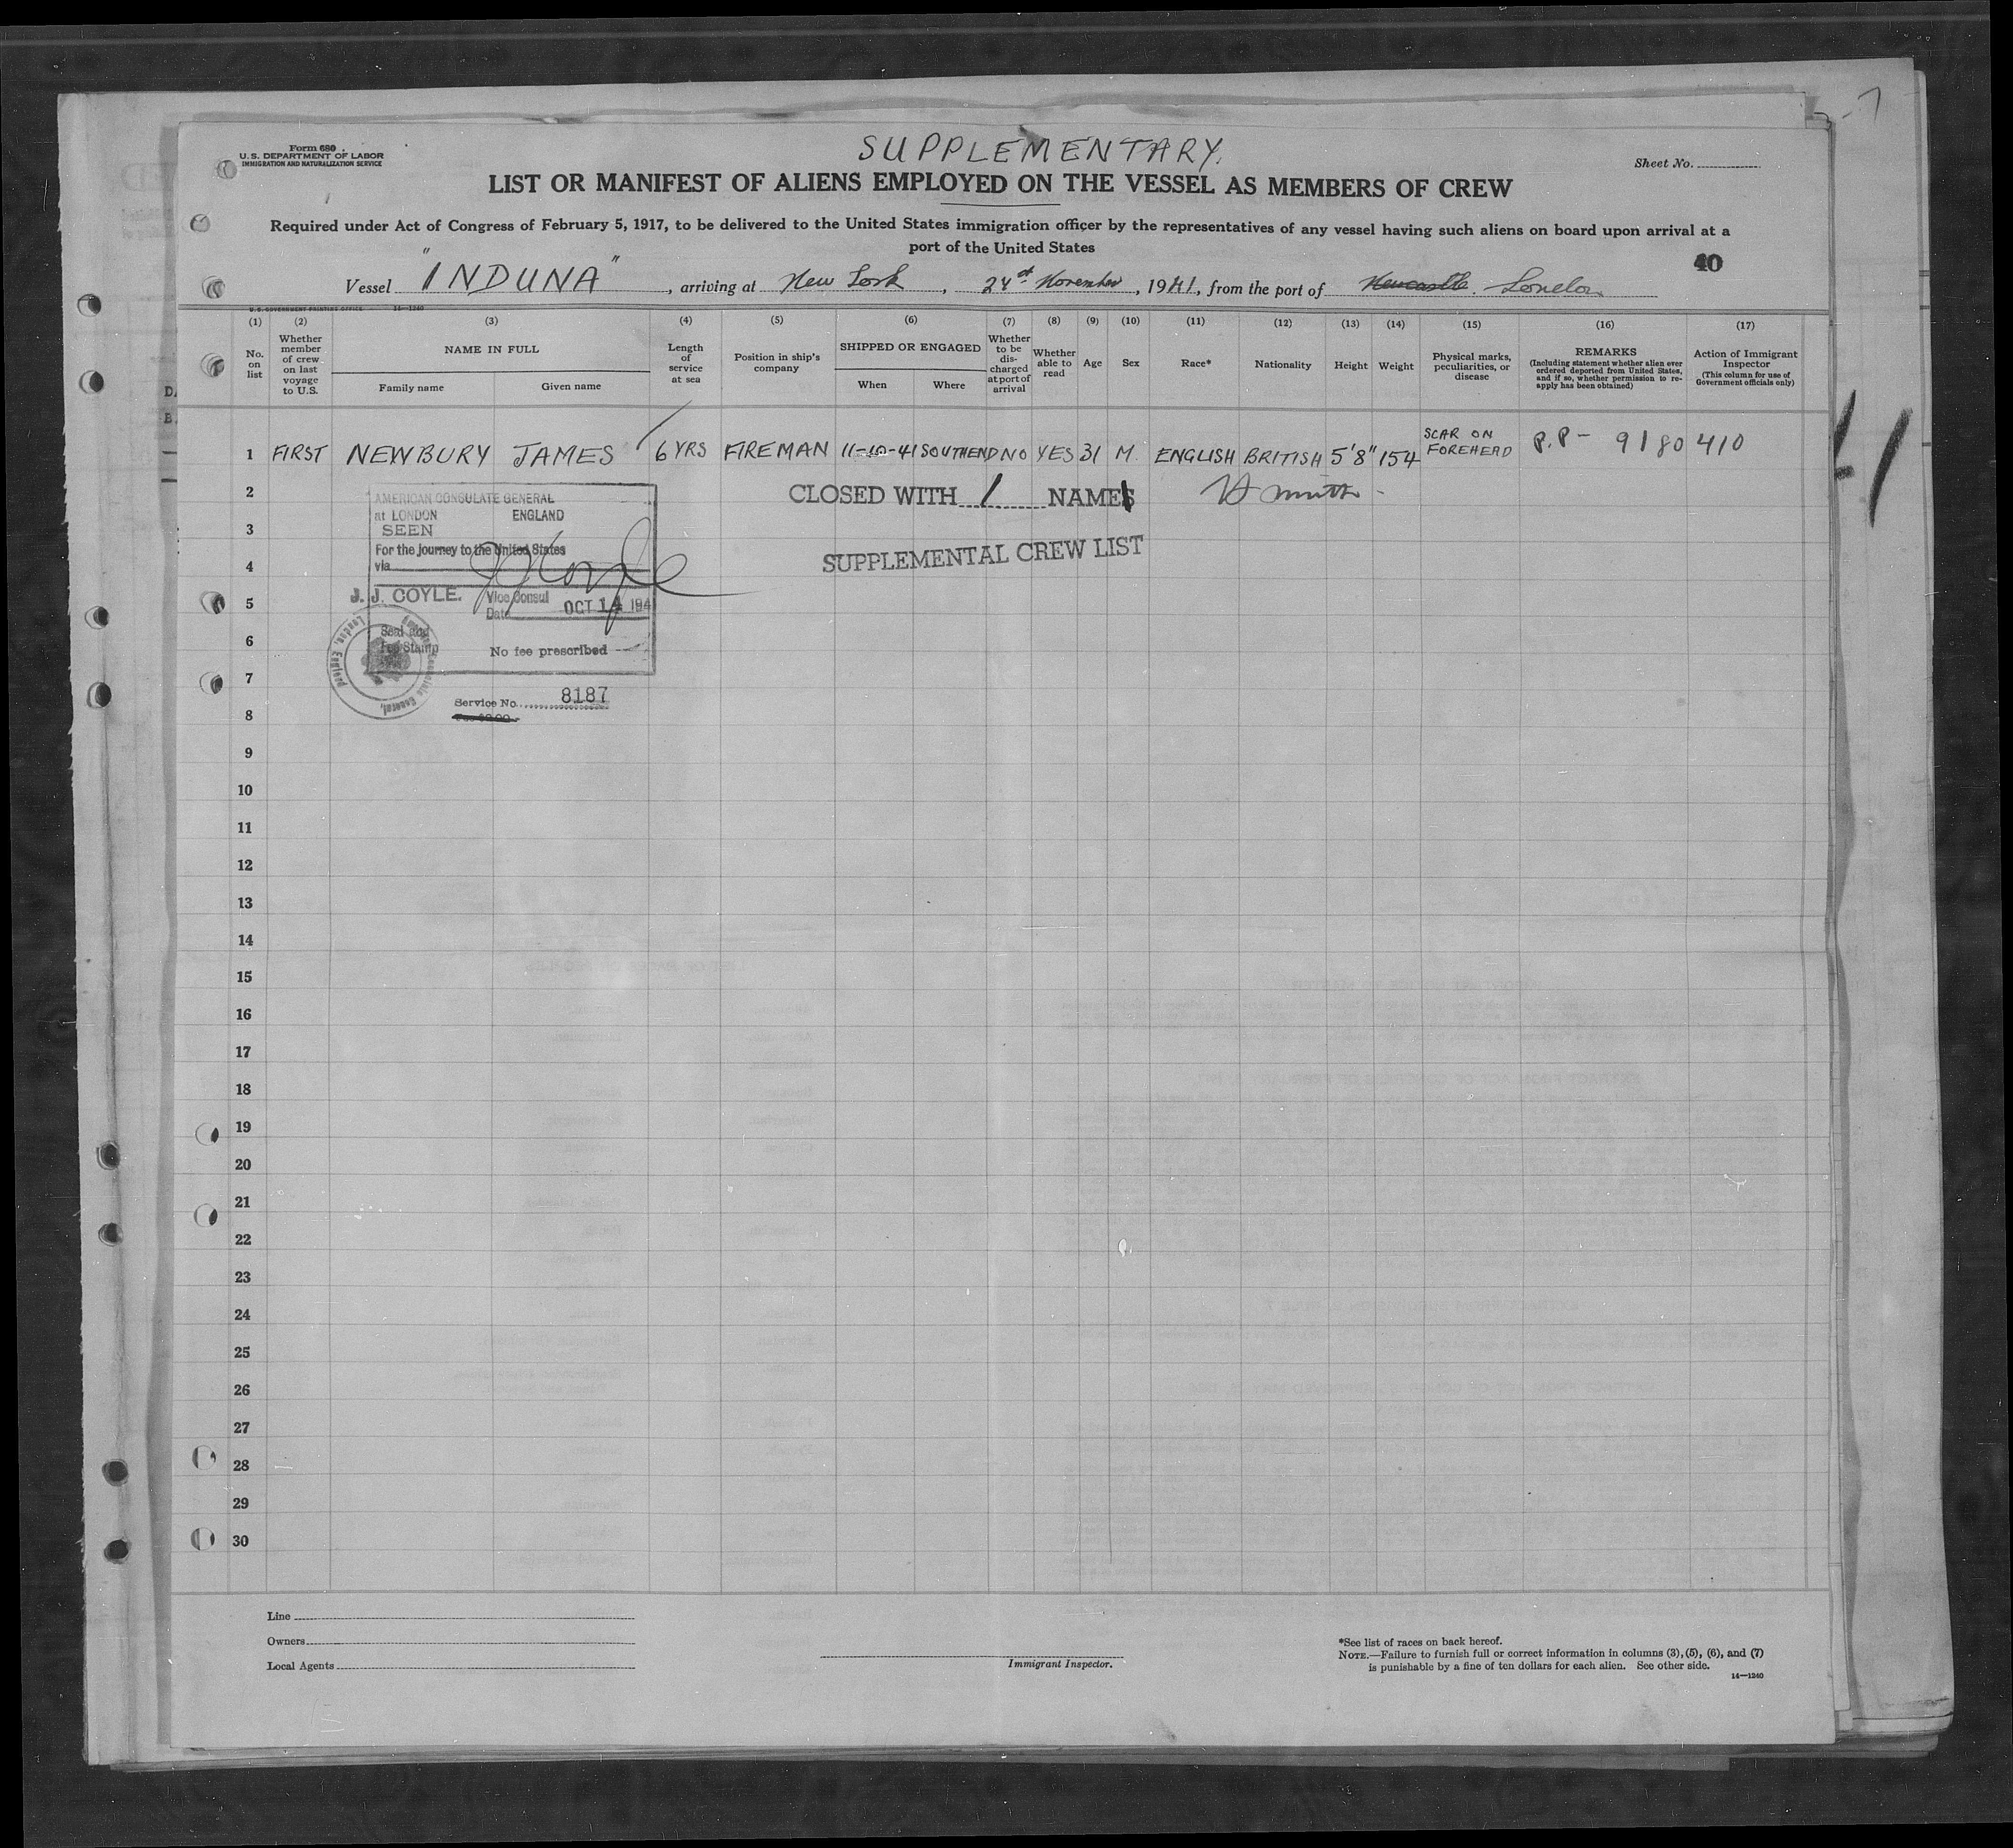 Form 680
U.S. DEPARTMENT OF LABOR
IMMIGRATION AND NATURALIZATION SERVICE
SUPPLEMENTARY.
Sheet No.
LIST OR MANIFEST OF ALIENS EMPLOYED ON THE VESSEL AS MEMBERS OF CREW
Required under Act of Congress of February 5, 1917, to be delivered to the United States immigration officer by the representatives of any vessel having such aliens on board upon arrival at a
port of the United States
40
Vessel "INDUNA", arriving at New York, 24th November, 1941, from the port of Newcastle. London
U.S. GOVERNMENT PRINTING OFFICE 14—1240
(1) (2) (3) (4) (5) (6) (7) (8) (9) (10) (11) (12) (13) (14) (15) (16) (17)
No. on list
Whether member of crew on last voyage to U.S.
NAME IN FULL
Family name Given name
Length of service at sea
Position in ship's company
SHIPPED OR ENGAGED
When Where
Whether to be discharged at port of arrival
Whether able to read
Age
Sex
Race*
Nationality
Height
Weight
Physical marks, peculiarities, or disease
REMARKS
(Including statement whether alien ever ordered deported from United States, and if so, whether permission to reapply has been obtained)
Action of Immigrant Inspector
(This column for use of Government officials only)
1 FIRST NEWBURY JAMES 6 YRS FIREMAN 11-10-41 SOUTHEND NO YES 31 M. ENGLISH BRITISH 5'8" 154 SCAR ON FOREHEAD P.P- 9180410
2
CLOSED WITH 1 NAMES
AMERICAN CONSULATE GENERAL
at LONDON ENGLAND
3
SEEN
For the journey to the United States
SUPPLEMENTAL CREW LIST
4
via
5
J. J. COYLE. Vice Consul
Date OCT 14 194
6
Seal and
Fee Stamp
No fee prescribed
7
Service No. 8187
8
9
10
11
12
13
14
15
16
17
18
19
20
21
22
23
24
25
26
27
28
29
30
Line
Owners
Local Agents
Immigrant Inspector.
*See list of races on back hereof.
NOTE.—Failure to furnish full or correct information in columns (3), (5), (6), and (7)
is punishable by a fine of ten dollars for each alien. See other side.
14—1240